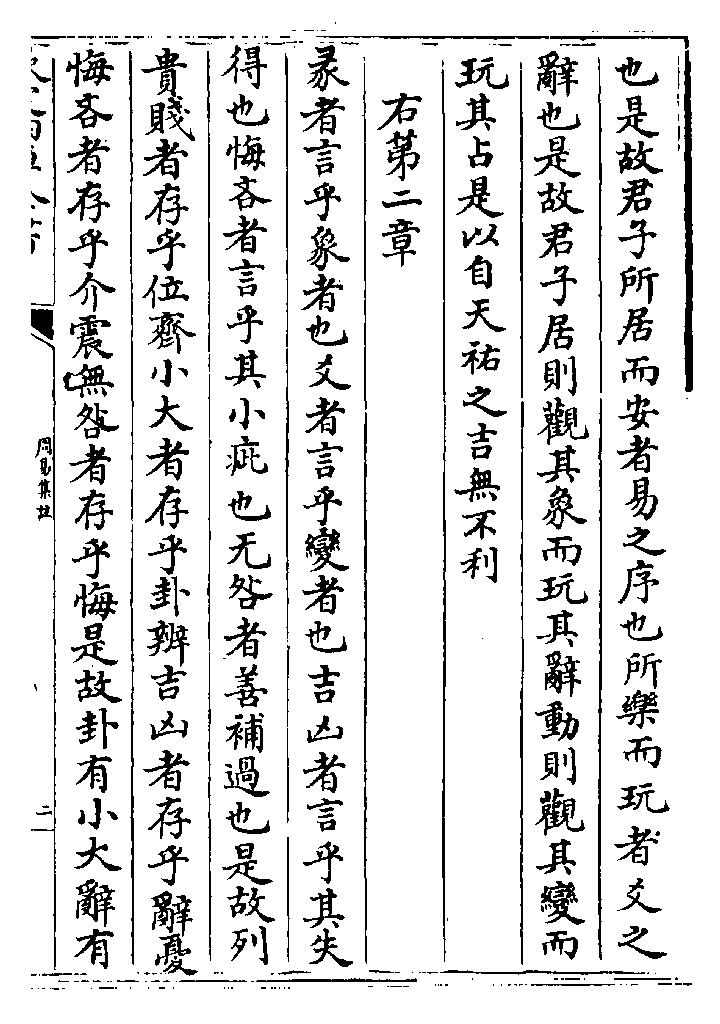 也是故君子所居而安者易之序也所樂而玩者爻之
辭也是故君子居則觀其象而玩其辭動則觀其變而
玩其占是以自天祐之吉無不利
右第二章
彖者言乎象者也爻者言乎變者也吉凶者言乎其失
得也悔吝者言乎其小疵也无咎者善補過也是故列
貴賤者存乎位齊小大者存乎卦辨吉凶者存乎辭憂
悔吝者存乎介震無咎者存乎悔是故卦有小大辭有
周易集註
二